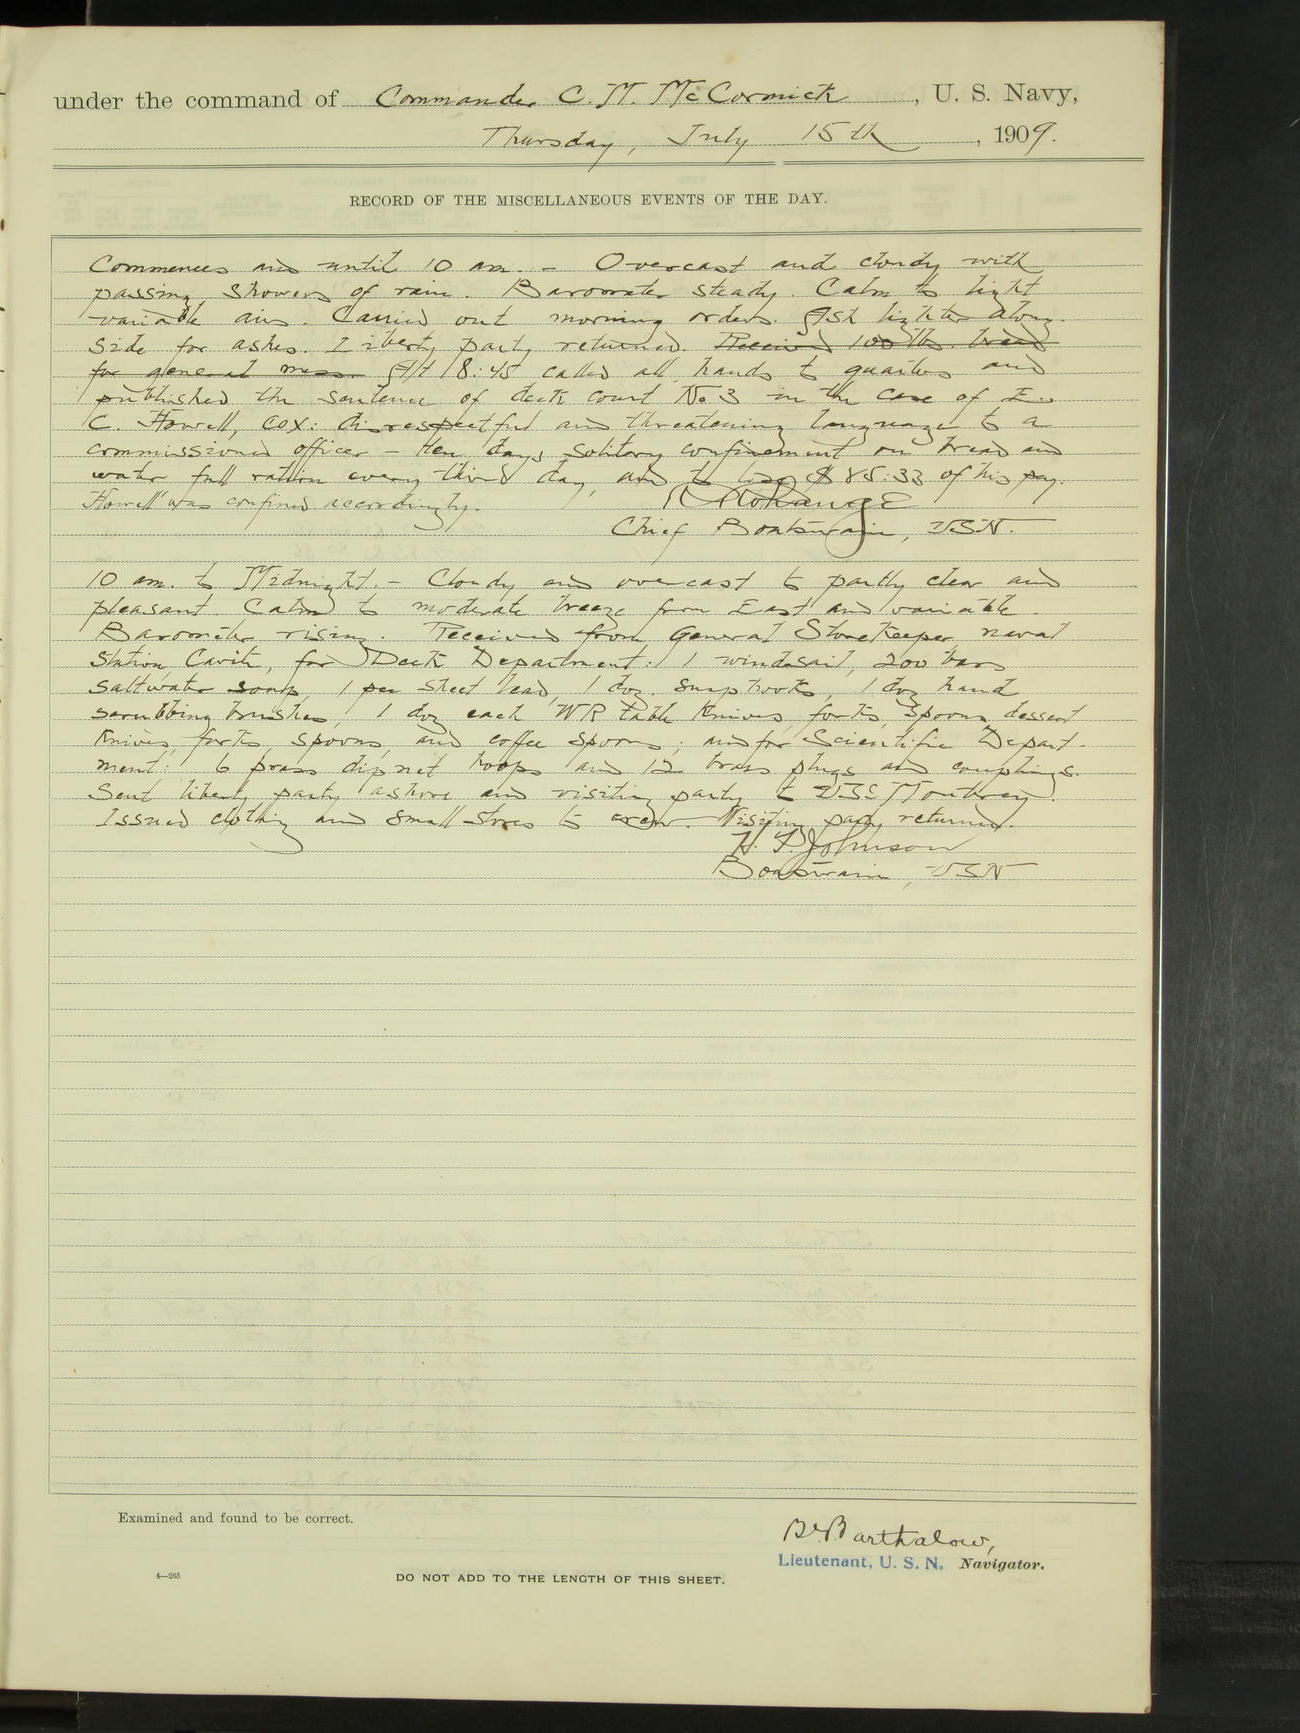 under the command of Commander C. M. McCormick, U. S. Navy,
Thursday, July 15th, 1909.
RECORD OF THE MISCELLANEOUS EVENTS OF THE DAY.
Commences and until 10 am. - Overcast and cloudy with
passing showers of rain. Barometer steady. Calm to light
variable airs. Carried out morning orders. Ash lighter along
side for ashes. Liberty party returned. Received 100 lbs. bread
for general mess. At 8:45 called all hands to quarters and
published the sentence of deck court No 3 in the case of E.
C. Howell, cox: disrespectful and threatening language to a
commissioned officer - ten days solitary confinement on bread and
water full ration every third day, and to lose $85.33 of his pay.
Howell was confined accordingly.
Chief Boatswain, USN.
10 am. to Midnight. - Cloudy and overcast to partly clear and
pleasant. Calm to moderate breeze from East and variable
Barometer rising. Received from General Storekeeper naval
Station, Cavite, for Deck Department: 1 windsail, 200 bars
saltwater soap, 1 sheet lead, 1 doz. snap hooks, 1 doz hand
scrubbing brushes, 1 doz each WR table knives, forks, spoons, dessert
knives, forks, spoons, and coffee spoons; and for Scientific Depart-
ment: 6 brass dip net hoops and 12 brass plugs and couplings.
Sent liberty party ashore and visiting party to USS Monterey.
Issued clothing and small stores to crew. Visiting party returned.
H. P. Johnson
Boatswain, USN
Examined and found to be correct.
Barthalow,
Lieutenant, U. S. N. Navigator.
4—265
DO NOT ADD TO THE LENGTH OF THIS SHEET.